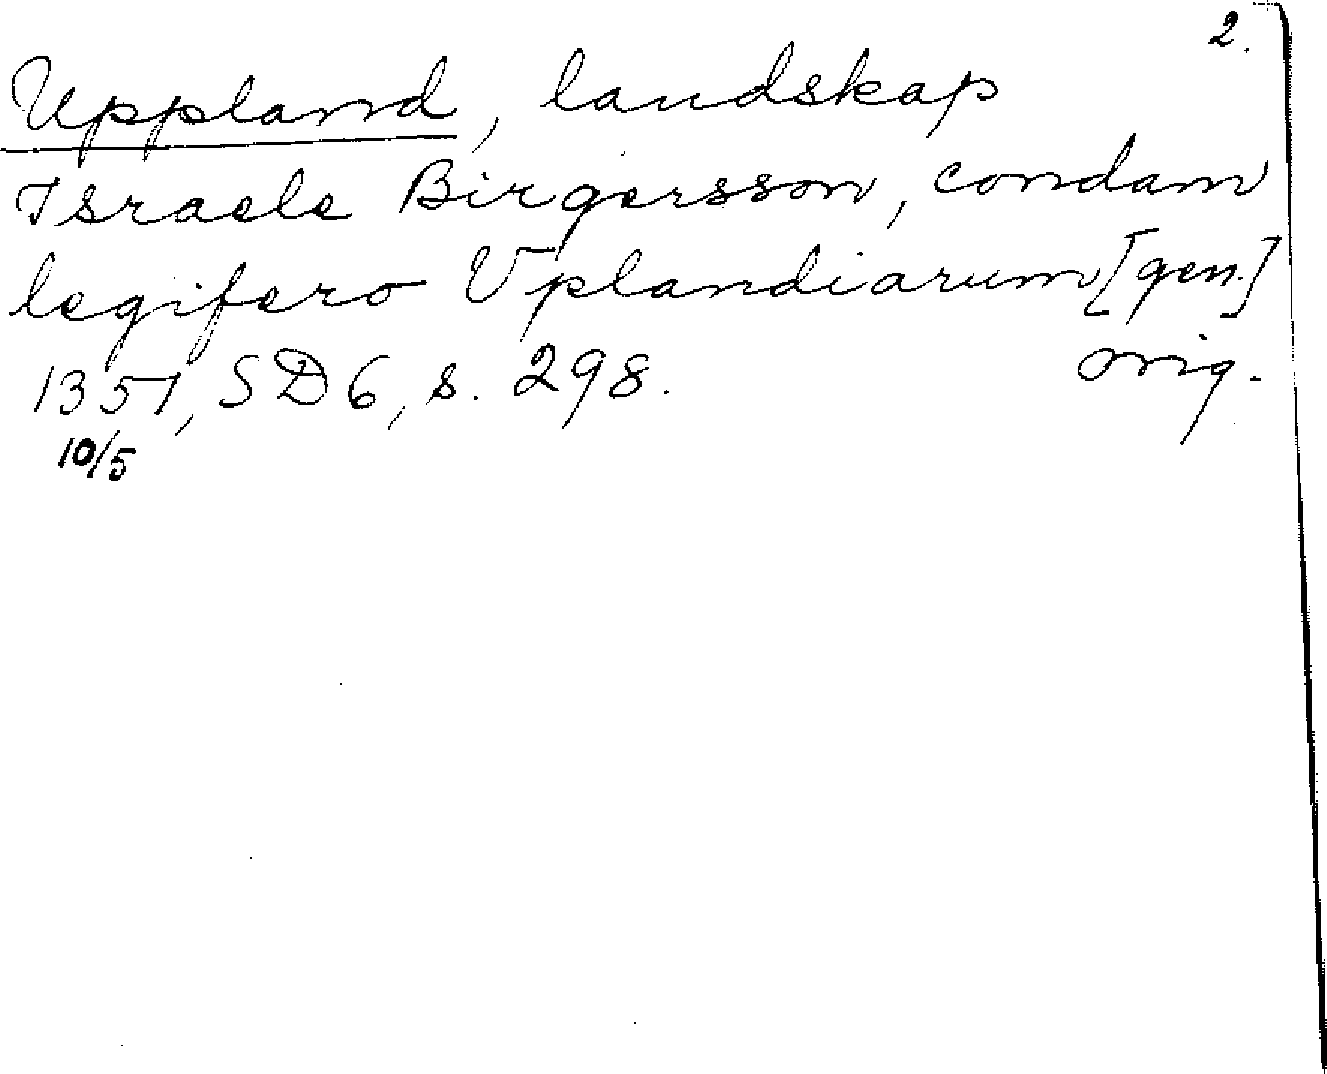 2.
Uppland, landskap
Israele Birgersson, condam
legifero Vplandiarum [gen.]
1351, SD6, s. 298. orig.
10/5